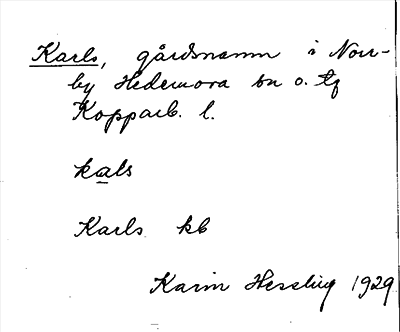 Karls, gårdsnamn i Norr-
by Hedemora sn o. tg
Kopparb. l.
kals
Karls kb
Karin Hessling 1929